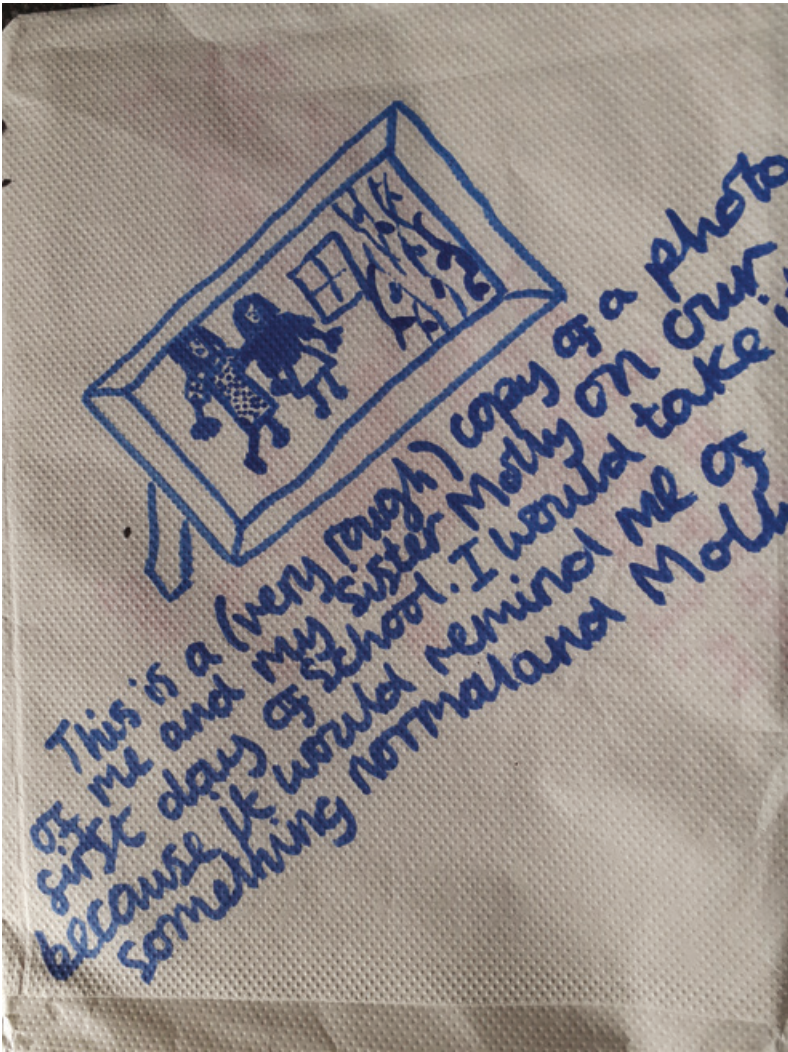 This is a (very rough) copy of a photo
of me and my sister Molly on our
first day of school. I would take
because it would remind me of
something normal and Molly